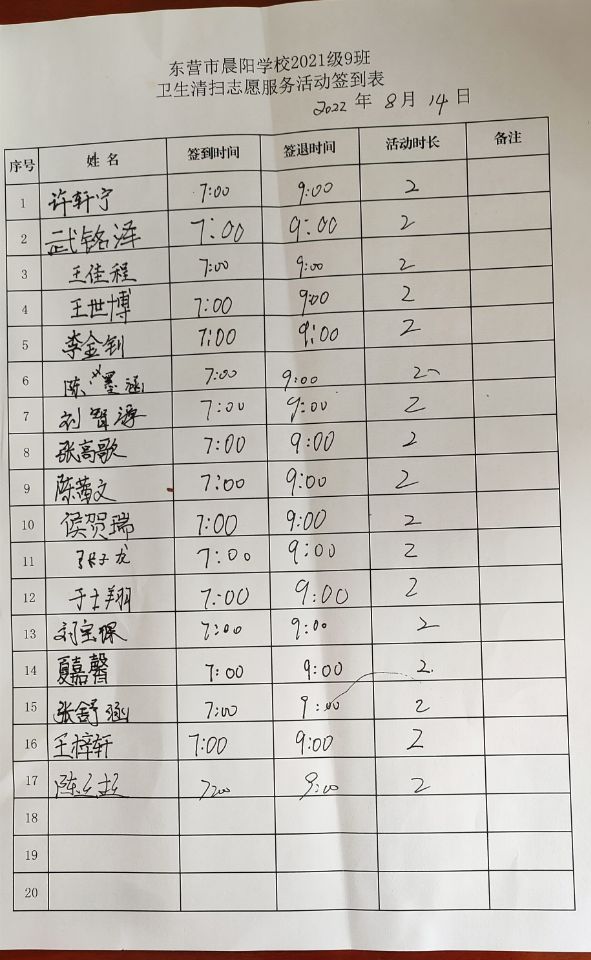 东营市晨阳学校2021级9班
卫生清扫志愿服务活动签到表
2022 年 8 月 14 日
序号 姓名 签到时间 签退时间 活动时长 备注
1 许轩宁 7:00 9:00 2
2 武铭泽 7:00 9:00 2
3 王佳程 7:00 9:00 2
4 王世博 7:00 9:00 2
5 李金钊 7:00 9:00 2
6 陈墨涵 7:00 9:00 2
7 刘智源 7:00 9:00 2
8 张高歌 7:00 9:00 2
9 陈文 7:00 9:00 2
10 侯贺瑞 7:00 9:00 2
11 张子龙 7:00 9:00 2
12 于士翔 7:00 9:00 2
13 刘宝琛 7:00 9:00 2
14 夏嘉馨 7:00 9:00 2
15 张舒涵 7:00 9:00 2
16 王梓轩 7:00 9:00 2
17 陈 7:00 9:00 2
18
19
20